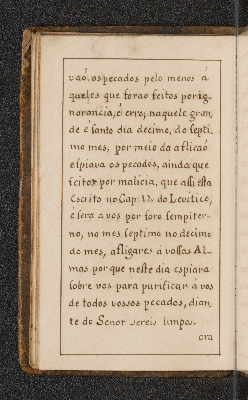 vaõ. os pecados pelo menos á
quelles que foraõ feitos por ig
norancia, é erro, naquele gran
de é santo dia decimo, do septi
mo mes, por meio da aflicaõ
espiava os pecados, ainda que
feitos por malicia, que assi esta
Escrito no Cap: do Levitico,
é sera a vos por foro sempiter
no, no mes septimo no decimo
do mes, afligares á vossas Al
mas por que neste dia espiara
sobre vos para purificar á vos
de todos vossos pecados, dian
te do Senor sereis limpos.
ora